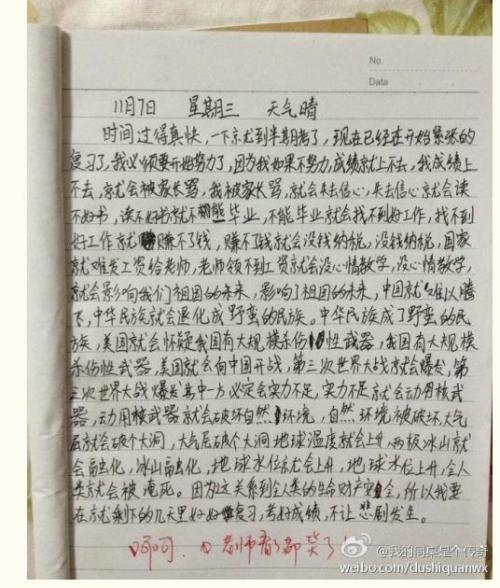 No.
Data
11月7日 星期三 天气晴
时间过得真快，一下就到半期考了，现在已经在开始紧张的
复习了，我必须要开始努力了，因为我如果不努力，成绩就上不去，我成绩上
不去，就会被家长骂，我被家长骂，就会失去信心，失去信心就会读
不好书，读不好书就不能毕业，不能毕业就会找不到好工作，找不到
好工作就赚不了钱，赚不了钱就会没钱纳税，没钱纳税，国家
就难发工资给老师，老师领不到工资就会没心情教学，没心情教学，
就会影响我们祖国的未来，影响了祖国的未来，中国就难以腾
飞，中华民族就会退化成野蛮的民族。中华民族成了野蛮的民
族，美国就会怀疑我国有大规模杀伤性武器，我国有大规模
杀伤性武器，美国就会向中国开战，第三次世界大战就会爆发，第
三次世界大战爆发其中一方必定会实力不足，实力不足就会动用核武
器，动用核武器就会破坏自然环境，自然环境被破坏，大气
层就会破个大洞，大气层破个大洞地球温度就会上升，两极冰山就
会融化，冰山融化，地球水位就会上升，地球水位上升，全人
类就会被淹死。因为这关系到全人类的生命财产安全，所以我要
在就剩下的几天里好好复习，考好成绩，不让悲剧发生。
呵呵，老师看了都笑了！
@我的前桌是个传奇
weibo.com/dushiquanwx